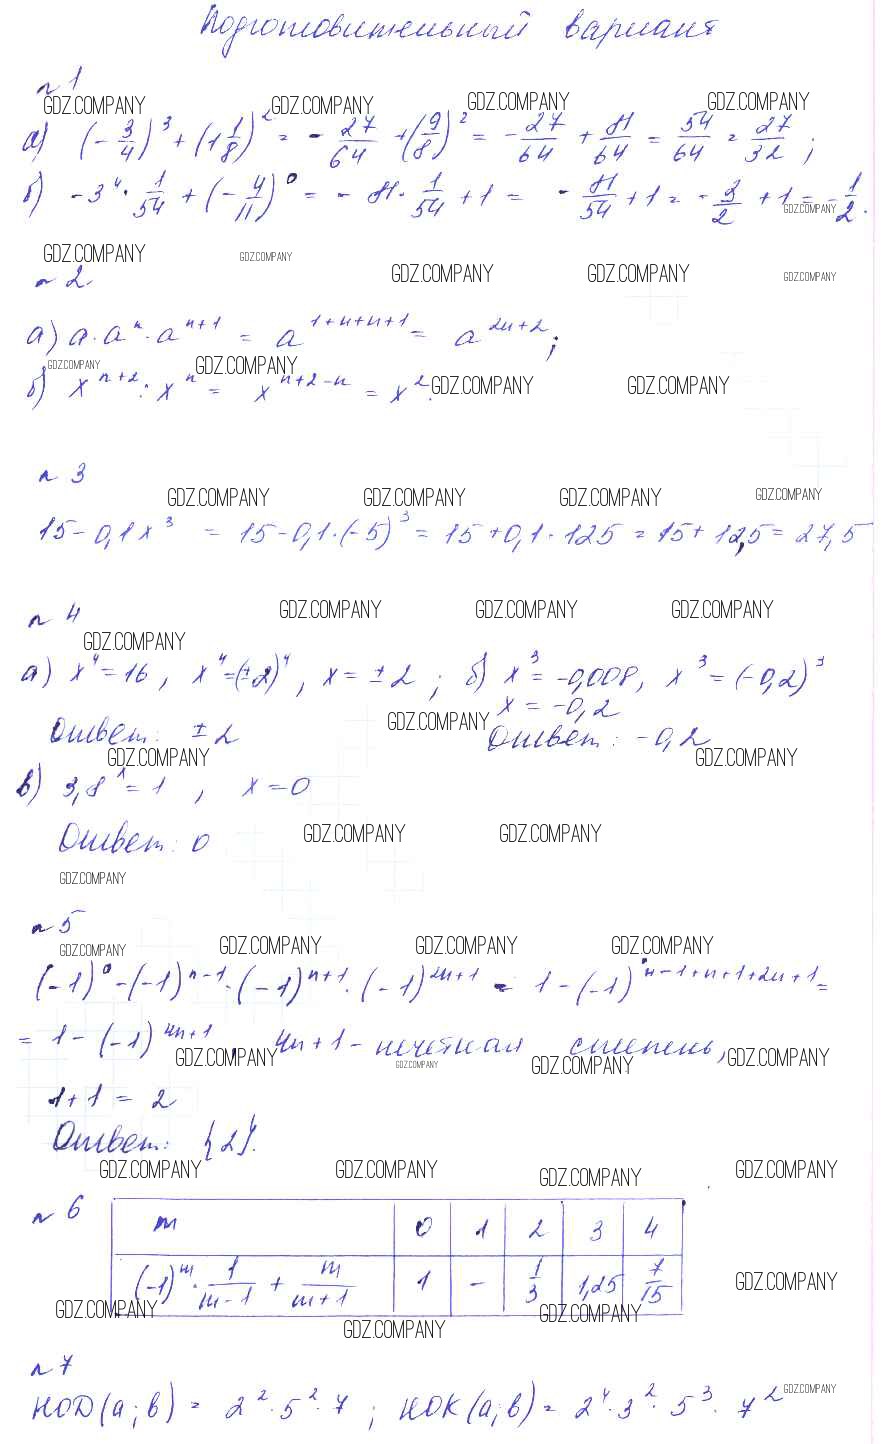 Подготовительный вариант
№ 1
GDZ.COMPANY GDZ.COMPANY GDZ.COMPANY GDZ.COMPANY
а) (-3/4)³ + (1 1/8)² = -27/64 + (9/8)² = -27/64 + 81/64 = 54/64 = 27/32 ;
б) -3⁴ · 1/54 + (-4/11)⁰ = -81 · 1/54 + 1 = -81/54 + 1 = -3/2 + 1 = -1/2.
GDZ.COMPANY
GDZ.COMPANY GDZ.COMPANY GDZ.COMPANY GDZ.COMPANY GDZ.COMPANY
№ 2
а) a · aⁿ · aⁿ⁺¹ = a¹⁺ⁿ⁺ⁿ⁺¹ = a²ⁿ⁺² ;
GDZ.COMPANY GDZ.COMPANY
б) xⁿ⁺² : xⁿ = xⁿ⁺²⁻ⁿ = x².
GDZ.COMPANY GDZ.COMPANY
№ 3
GDZ.COMPANY GDZ.COMPANY GDZ.COMPANY GDZ.COMPANY
15 - 0,1x³ = 15 - 0,1 · (-5)³ = 15 + 0,1 · 125 = 15 + 12,5 = 27,5
№ 4
GDZ.COMPANY GDZ.COMPANY GDZ.COMPANY
GDZ.COMPANY
а) x⁴ = 16, x⁴ = (±2)⁴, x = ±2 ; б) x³ = -0,008, x³ = (-0,2)³
x = -0,2
GDZ.COMPANY
Ответ: ±2 Ответ: -0,2
GDZ.COMPANY GDZ.COMPANY
в) 3,8ˣ = 1 , x = 0
Ответ: 0
GDZ.COMPANY GDZ.COMPANY
GDZ.COMPANY
№ 5
GDZ.COMPANY GDZ.COMPANY GDZ.COMPANY GDZ.COMPANY
(-1)⁰ - (-1)ⁿ⁻¹ · (-1)ⁿ⁺¹ · (-1)²ⁿ⁺¹ = 1 - (-1)ⁿ⁻¹⁺ⁿ⁺¹⁺²ⁿ⁺¹ =
= 1 - (-1)⁴ⁿ⁺¹, 4n + 1 - нечётная степень,
GDZ.COMPANY GDZ.COMPANY GDZ.COMPANY GDZ.COMPANY
1 + 1 = 2
Ответ: {2}.
GDZ.COMPANY GDZ.COMPANY GDZ.COMPANY GDZ.COMPANY
№ 6
m 0 1 2 3 4
(-1)ᵐ · 1/(m-1) + m/(m+1) 1 - 1/3 1,25 7/15
GDZ.COMPANY
GDZ.COMPANY GDZ.COMPANY GDZ.COMPANY
№ 7
НОД(a; b) = 2² · 5² · 7 ; НОК(a; b) = 2⁴ · 3² · 5³ · 7²
GDZ.COMPANY